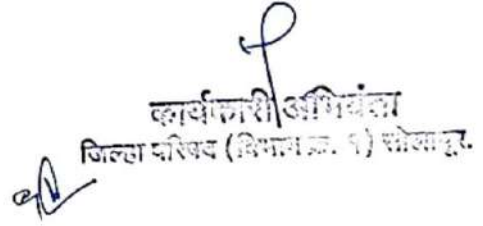 कार्यकारी अभियंता
जिल्हा परिषद (विभाग क्र. १) सोलापूर.